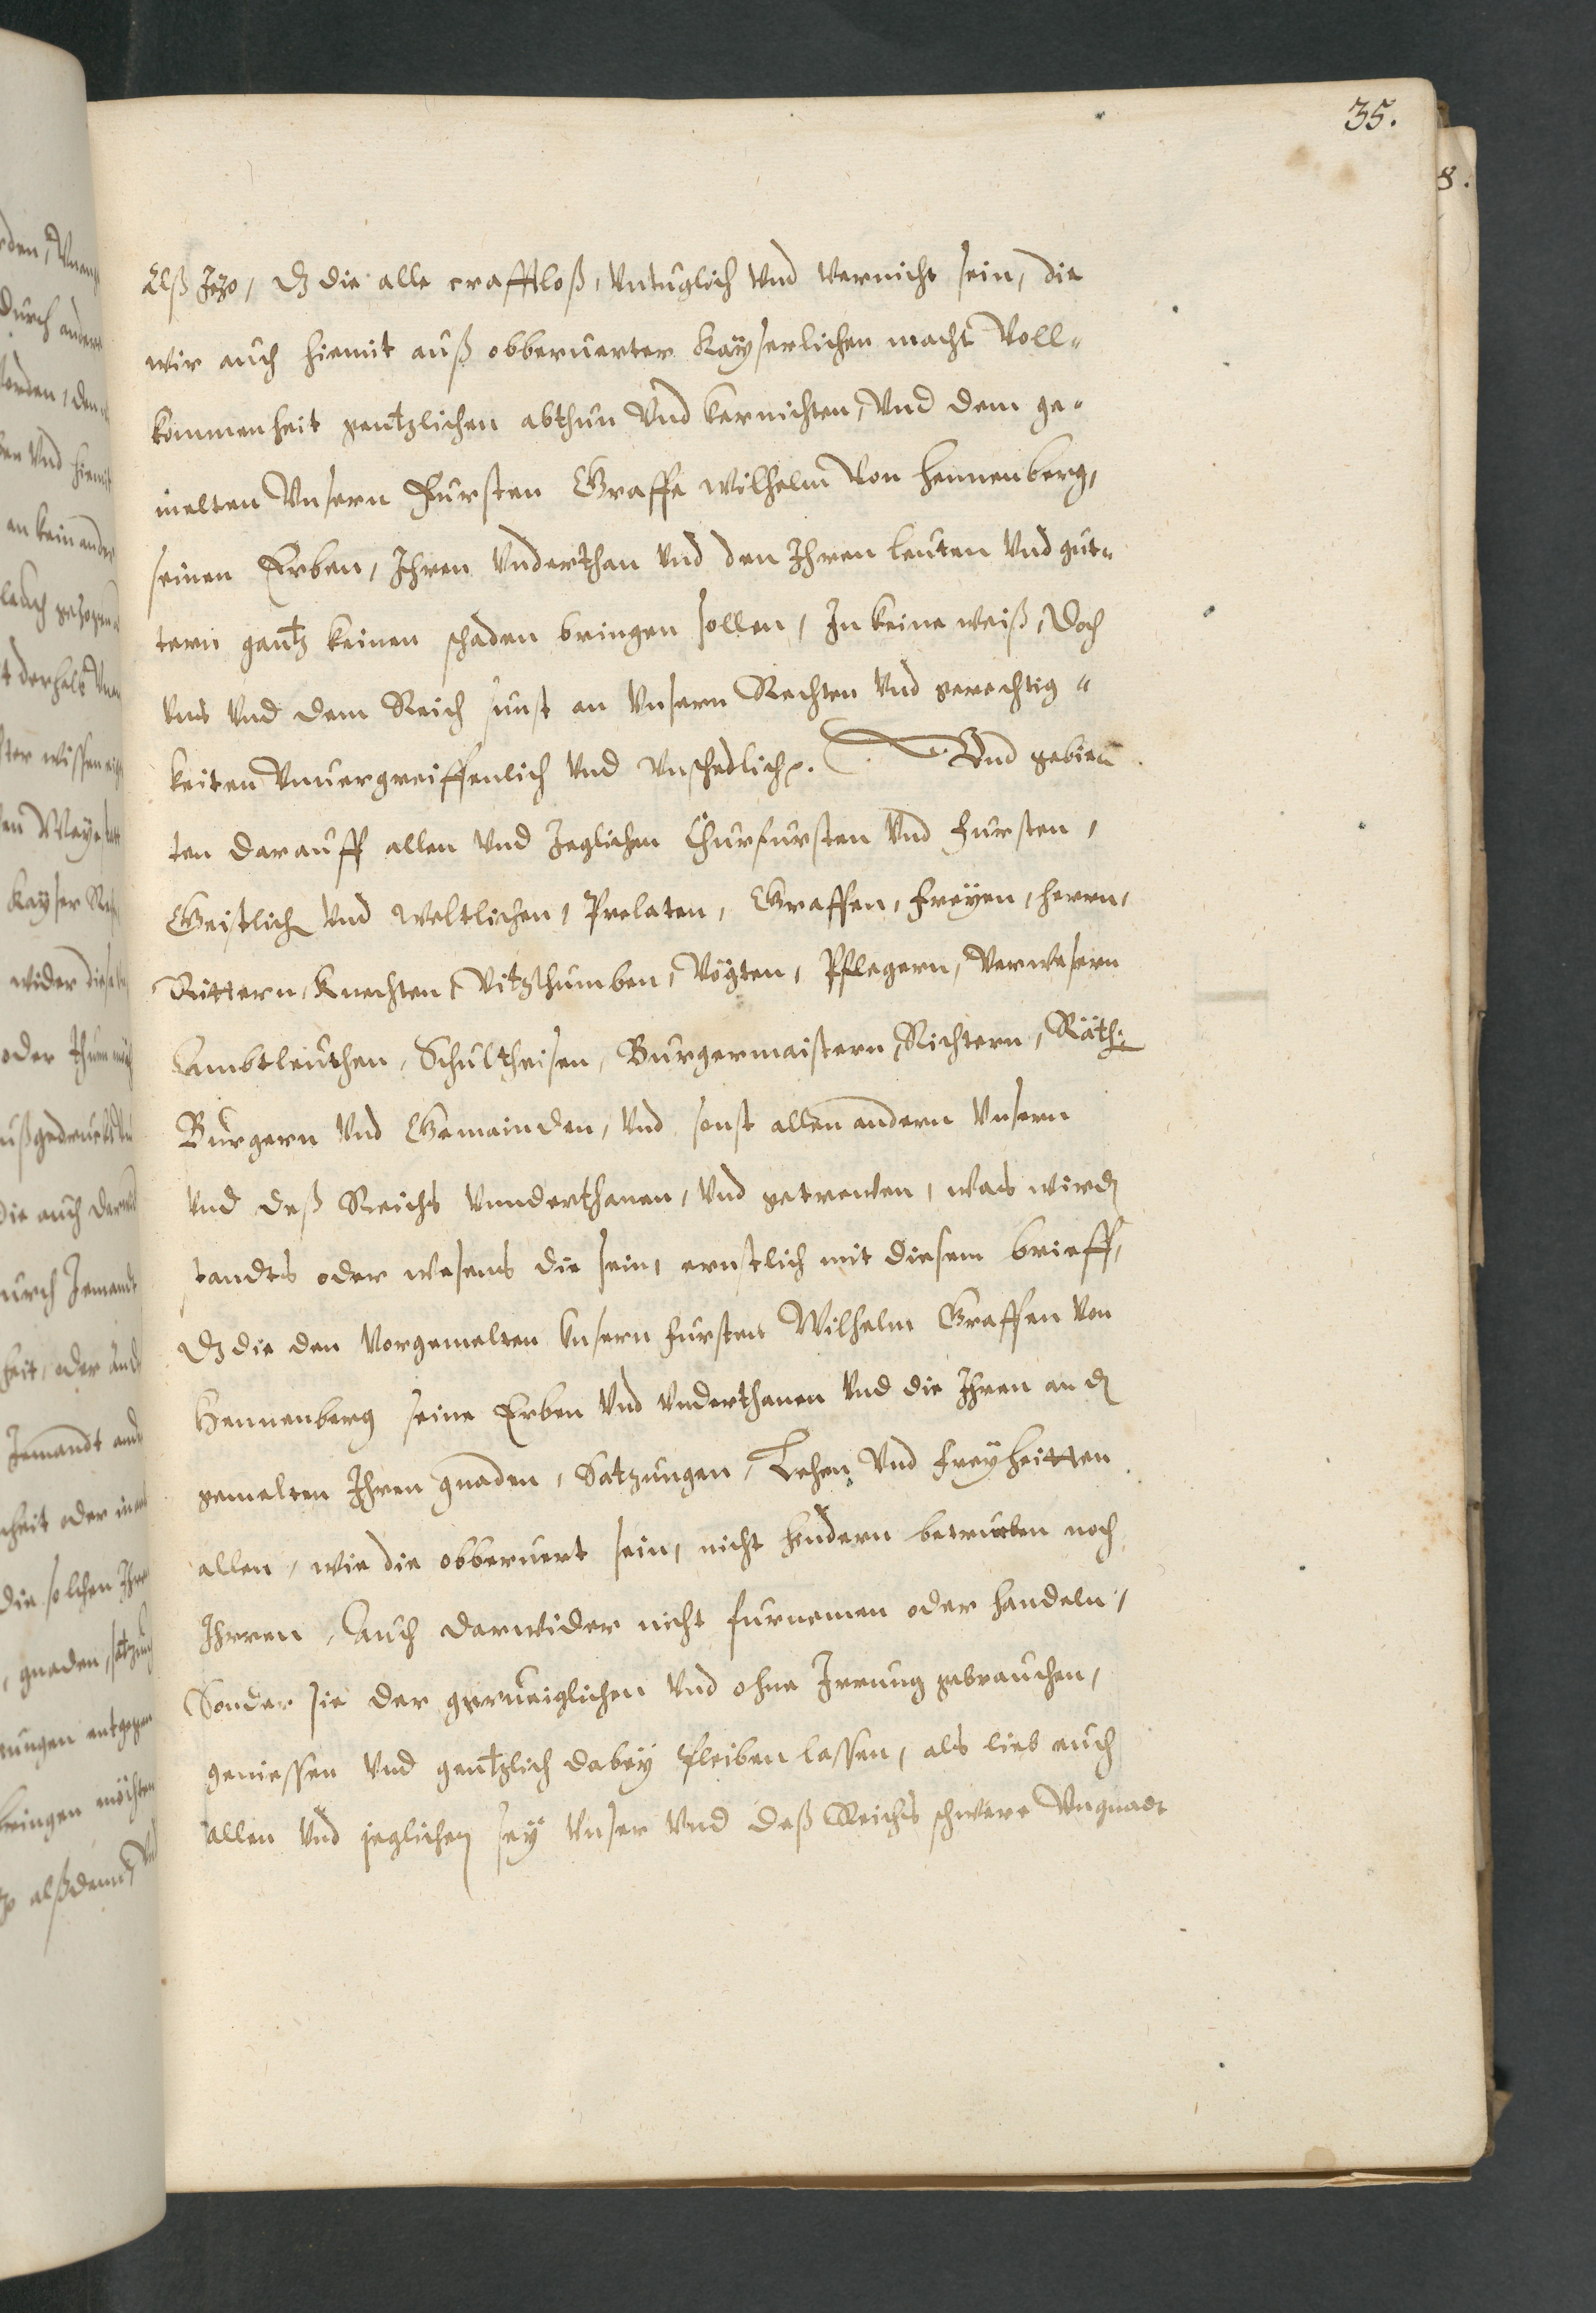 35.
8.
Alß Jezo, dz die alle crafftloß, vntuglich vnd vernicht sein, die
wir auch hiemit auß obberuerter Kaÿserlichen macht Voll-
kommenheit gentzlichen abthun Vnd vernichten, Vnd dem ge-
melten Vnsern Fursten Graffe Wilhelm Von Hennenberg,
seinen Erben, Ihren Vnderthan Vnd den Ihren leuten Vnd gut-
tern gantz keinen schaden bringen sollen, In keine weiß, Doch
Vns Vnd dem Reich sunst an Vnsern Rechten Vnd gerechtig-
keiten Vnuergreiffenlich Vnd Vnschedlich. Vnd gebie-
ten darauff allen Vnd Jeglichen Churfursten Vnd Fursten,
Geistlich Vnd Weltlichen, Prelaten, Graffen, Freÿen, Herrn,
Rittern, Knechten, Vitzthumben, Vögten, Pflegern, Verwesern
Ambtleuthen, Schultheisen, Burgermaistern, Richtern, Räth:
Burgern Vnd Gemainden, Vnd sonst allen andern Vnsern
Vnd deß Reichs Vnnderthanen, Vnd getrewen, was wirdn
standts oder wesens die sein, ernstlich mit diesem brieff,
dz die den Vorgemelten Vnsern Fursten Wilhelm Graffen Von
Hennenberg seine Erben Vnd Vnderthanen Vnd die Ihren an dn
gemelten Ihren gnaden, Satzungen, Lehen Vnd Freÿheitten
allen, wie die obberuert sein, nicht hindern betruben noch
Ihrren, Auch darwider nicht furnemen oder handeln,
Sonder sie der gerueiglichen Vnd ohne Irrung gebrauchen,
geniessen Vnd gentzlich dabeÿ pleiben lassen, als lieb euch
allen Vnd jeglichen seÿ Vnser Vnd deß Reichs schwere Vngnadt